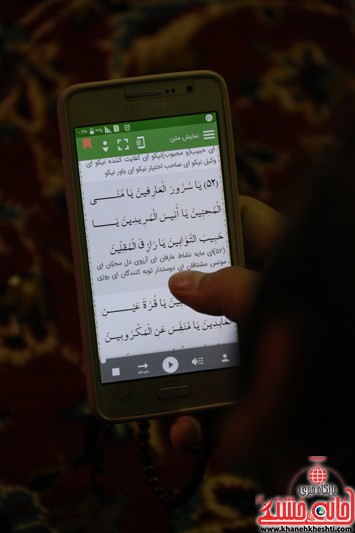 نمایش متن
ای حبیب(و محبوب)نیکو ای کفایت کننده نیکو ای
وکیل نیکو ای صاحب اختیار نیکو ای یاور نیکو
(۵۲) یَا سُرُورَ الْعَارِفِینَ یَا مُنَـى
الْمُحِبِّینَ یَا أَنِیسَ الْمُرِیدِینَ یَـــا
حَبِیبَ التَّوَّابِینَ یَا رَازِقَ الْمُقِلِّینَ
(۵۲)ای مایه نشاط عارفان ای آرزوی دل محبّان ای
مونس مشتاقان ای دوستدار توبه کنندگان ای روزی
یَا قُرَّةَ عَیْـــنِ
الْعَابِدِینَ یَا مُنَفِّسَ عَنِ الْمَکْرُوبِینَ
پایگاه خبری
خانه خشتی
www.khanehkheshti.com